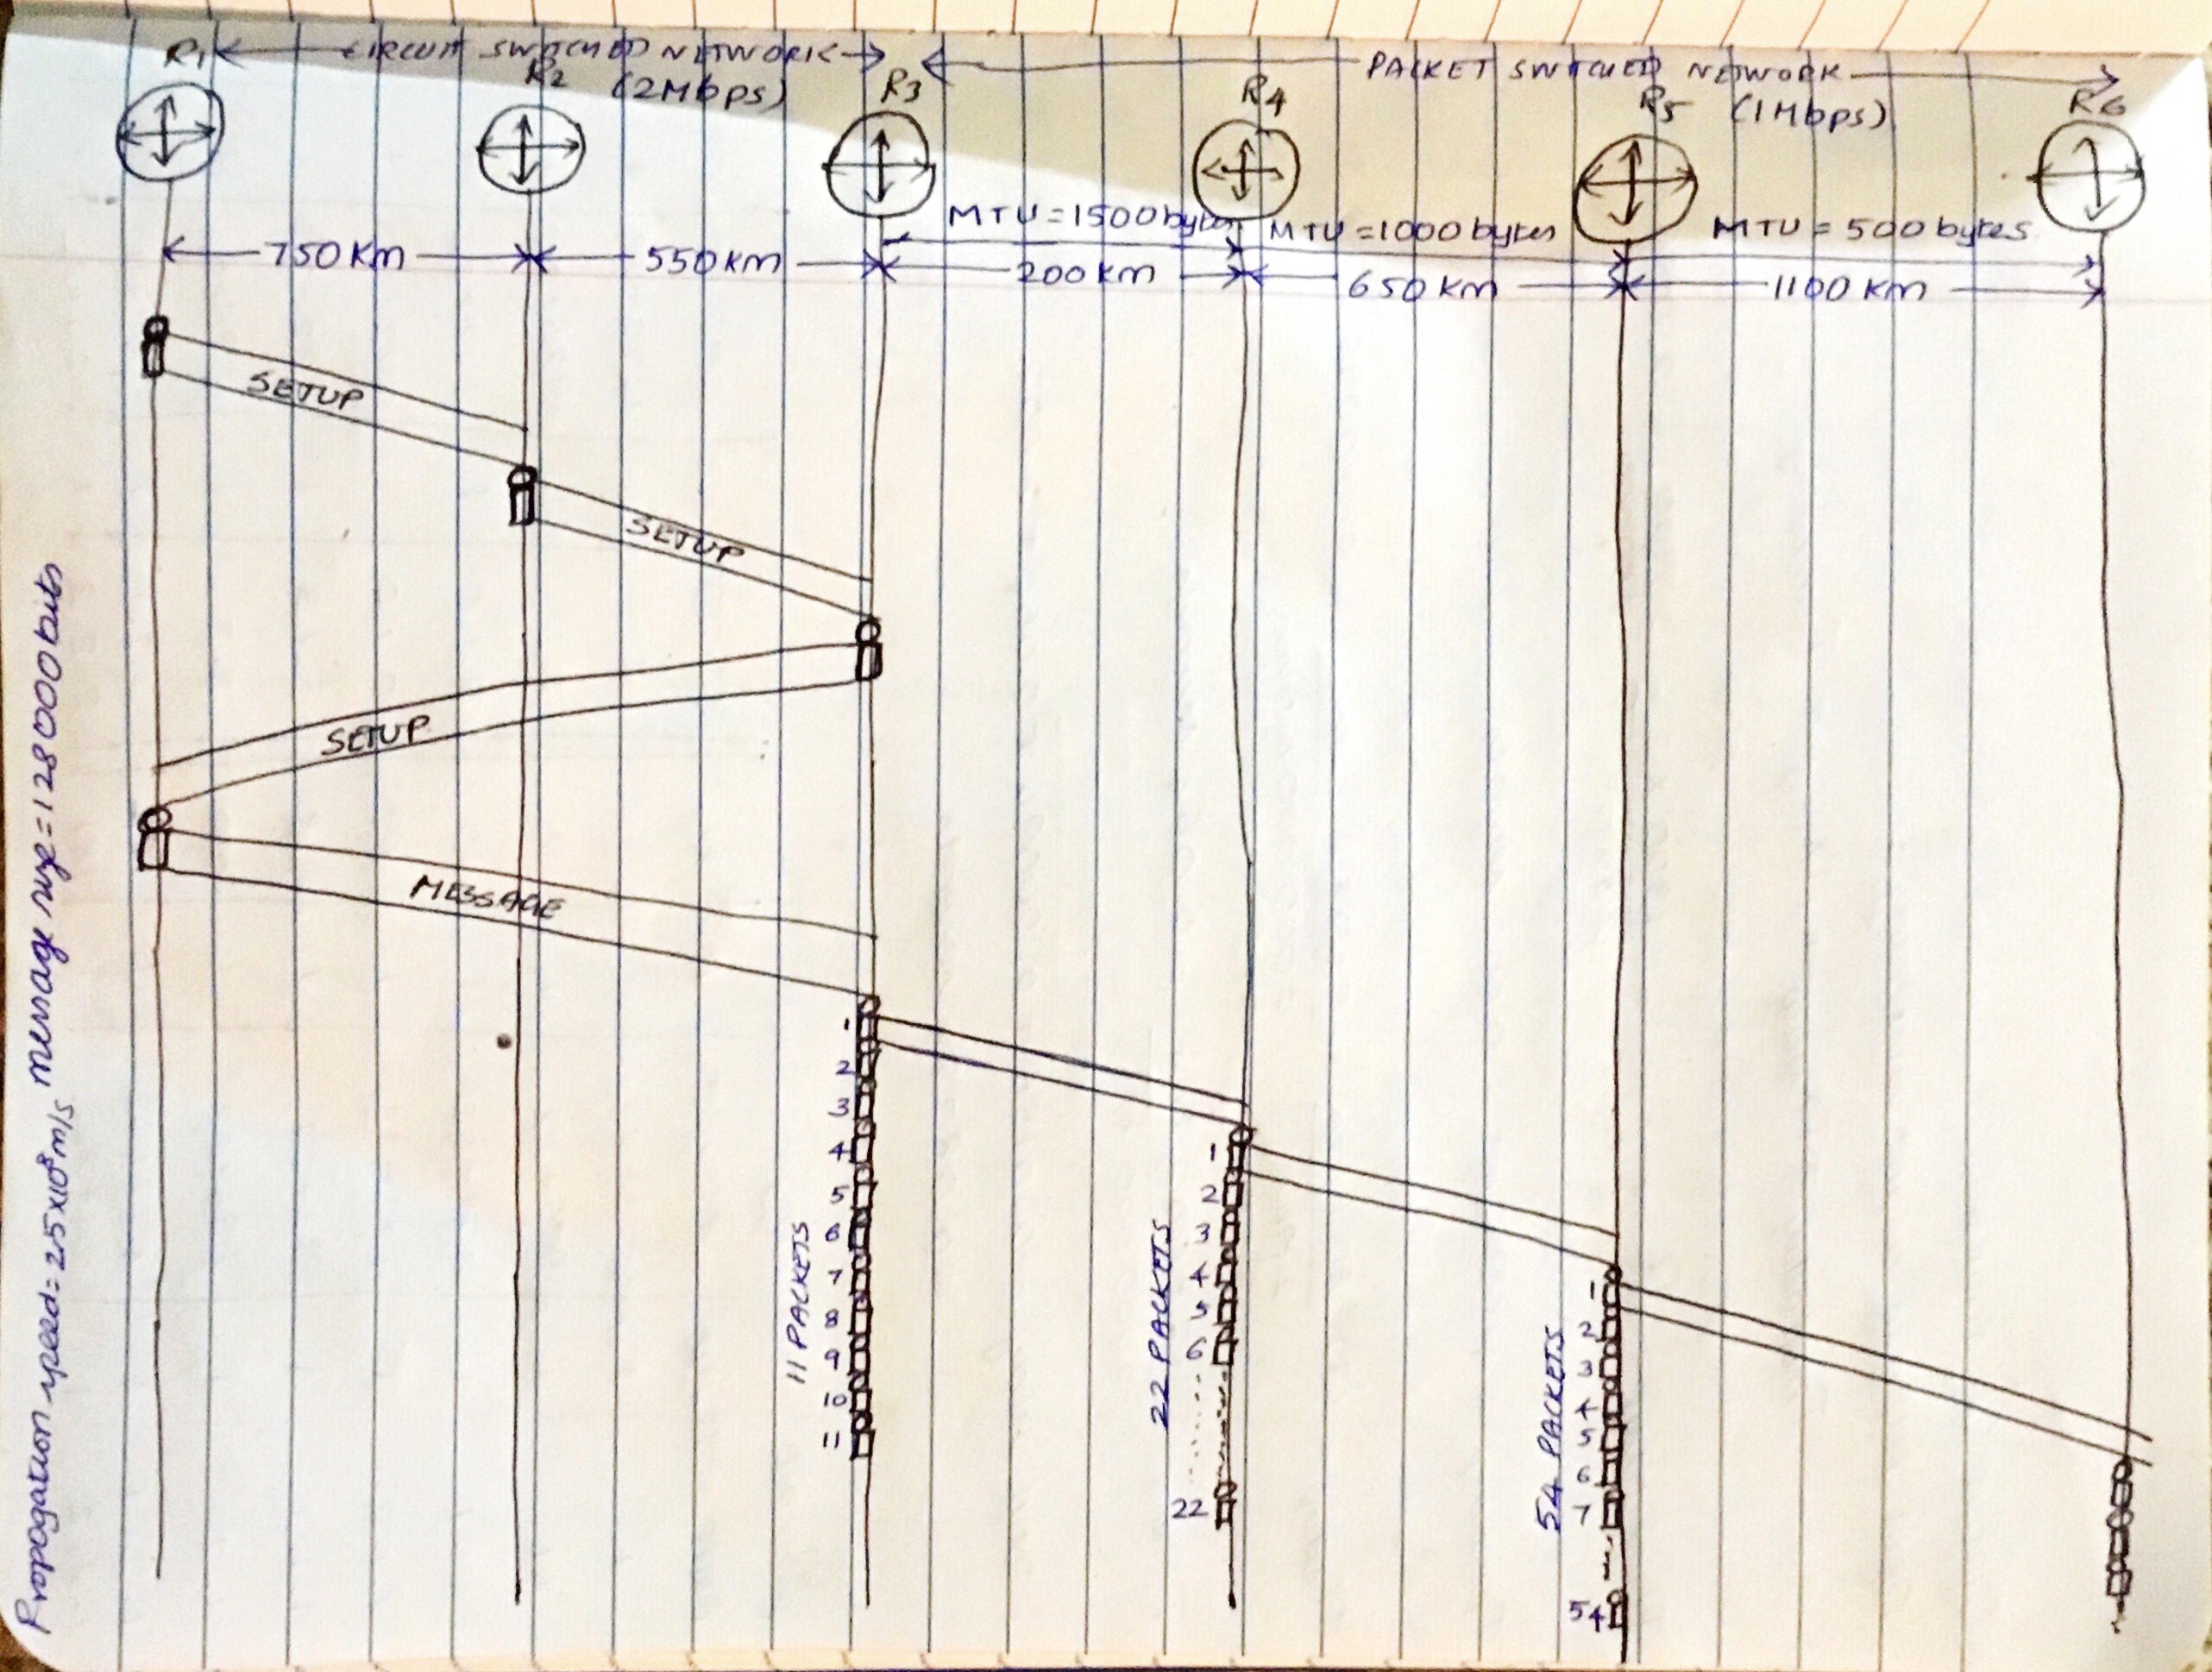 R1 CIRCUIT SWITCHED NETWORK R2 (2Mbps) R3
PACKET SWITCHED NETWORK R4 R5 (1Mbps) R6
MTU = 1500 bytes MTU = 1000 bytes MTU = 500 bytes
750 Km 550 Km 200 Km 650 Km 1100 Km
SETUP
SETUP
SETUP
MESSAGE
1
2
3
4
5
6
7
8
9
10
11
11 PACKETS
1
2
3
4
5
6
22
22 PACKETS
1
2
3
4
5
6
7
54
54 PACKETS
Propogation speed = 2.5x10⁸ m/s message size = 128000 bits